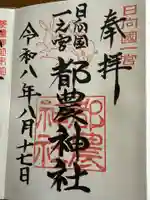 奉拝
日向國一宮
日向國
一之宮
都農神社
令和八年八月十七日